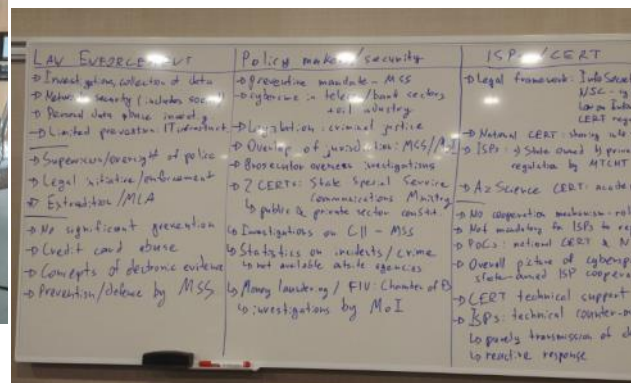 LAW ENFORCEMENT
→ Investigation, collection of data
→ Network security (includes social)
→ Personal data abuse investig.
→ Limited prevention: IT infrastruct
→ Supervision/oversight of police
→ Legal initiative/enforcement
→ Extradition/MLA
→ No significant prevention
→ Credit card abuse
→ Concepts of electronic evidence
→ Prevention/defence by MSS
Policy makers/security
→ preventive mandate - MSS
→ cybercrime in telecom/bank sectors
+ oil industry
→ Legislation: criminal justice
→ Overlap of jurisdiction: MSS/MoI
→ Prosecutor oversees investigations
→ 2 CERTs: State Special Service
Communications Ministry
↳ public & private sector
↳ Investigations on CII - MSS
↳ Statistics on incidents/crime
↳ not available outside agencies
↳ Money laundering / FIU: Chamber of
↳ investigations by MoI
ISPs / CERT
→ Legal framework:
NSC -
Law on
CERT
→ National CERT: sharing
→ ISPs: State owned &
regulation by MTCHT
→ Az Science CERT:
→ No cooperation mechanism -
→ Not mandatory for ISPs to
→ PoCs: national CERT &
→ Overall picture of
state-owned ISP
→ CERT technical support
→ ISPs: technical
↳ purely transmission of
↳ reactive response